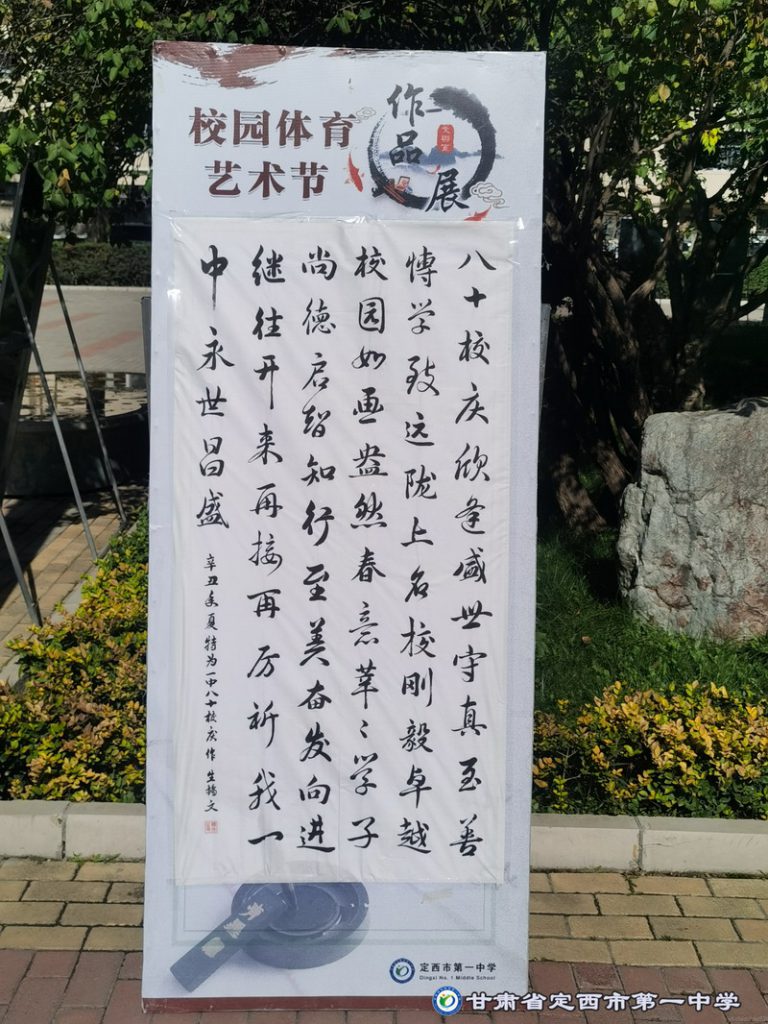 校园体育
艺术节
作品展
八十校庆欣逢盛世守真至善
博学致远陇上名校刚毅卓越
校园如画盎然春意莘〻学子
尚德启智知行至美奋发向进
继往开来再接再厉祈我一
中永世昌盛
辛丑年夏特为一中八十校庆作
定西市第一中学
Dingxi No. 1 Middle School
甘肃省定西市第一中学